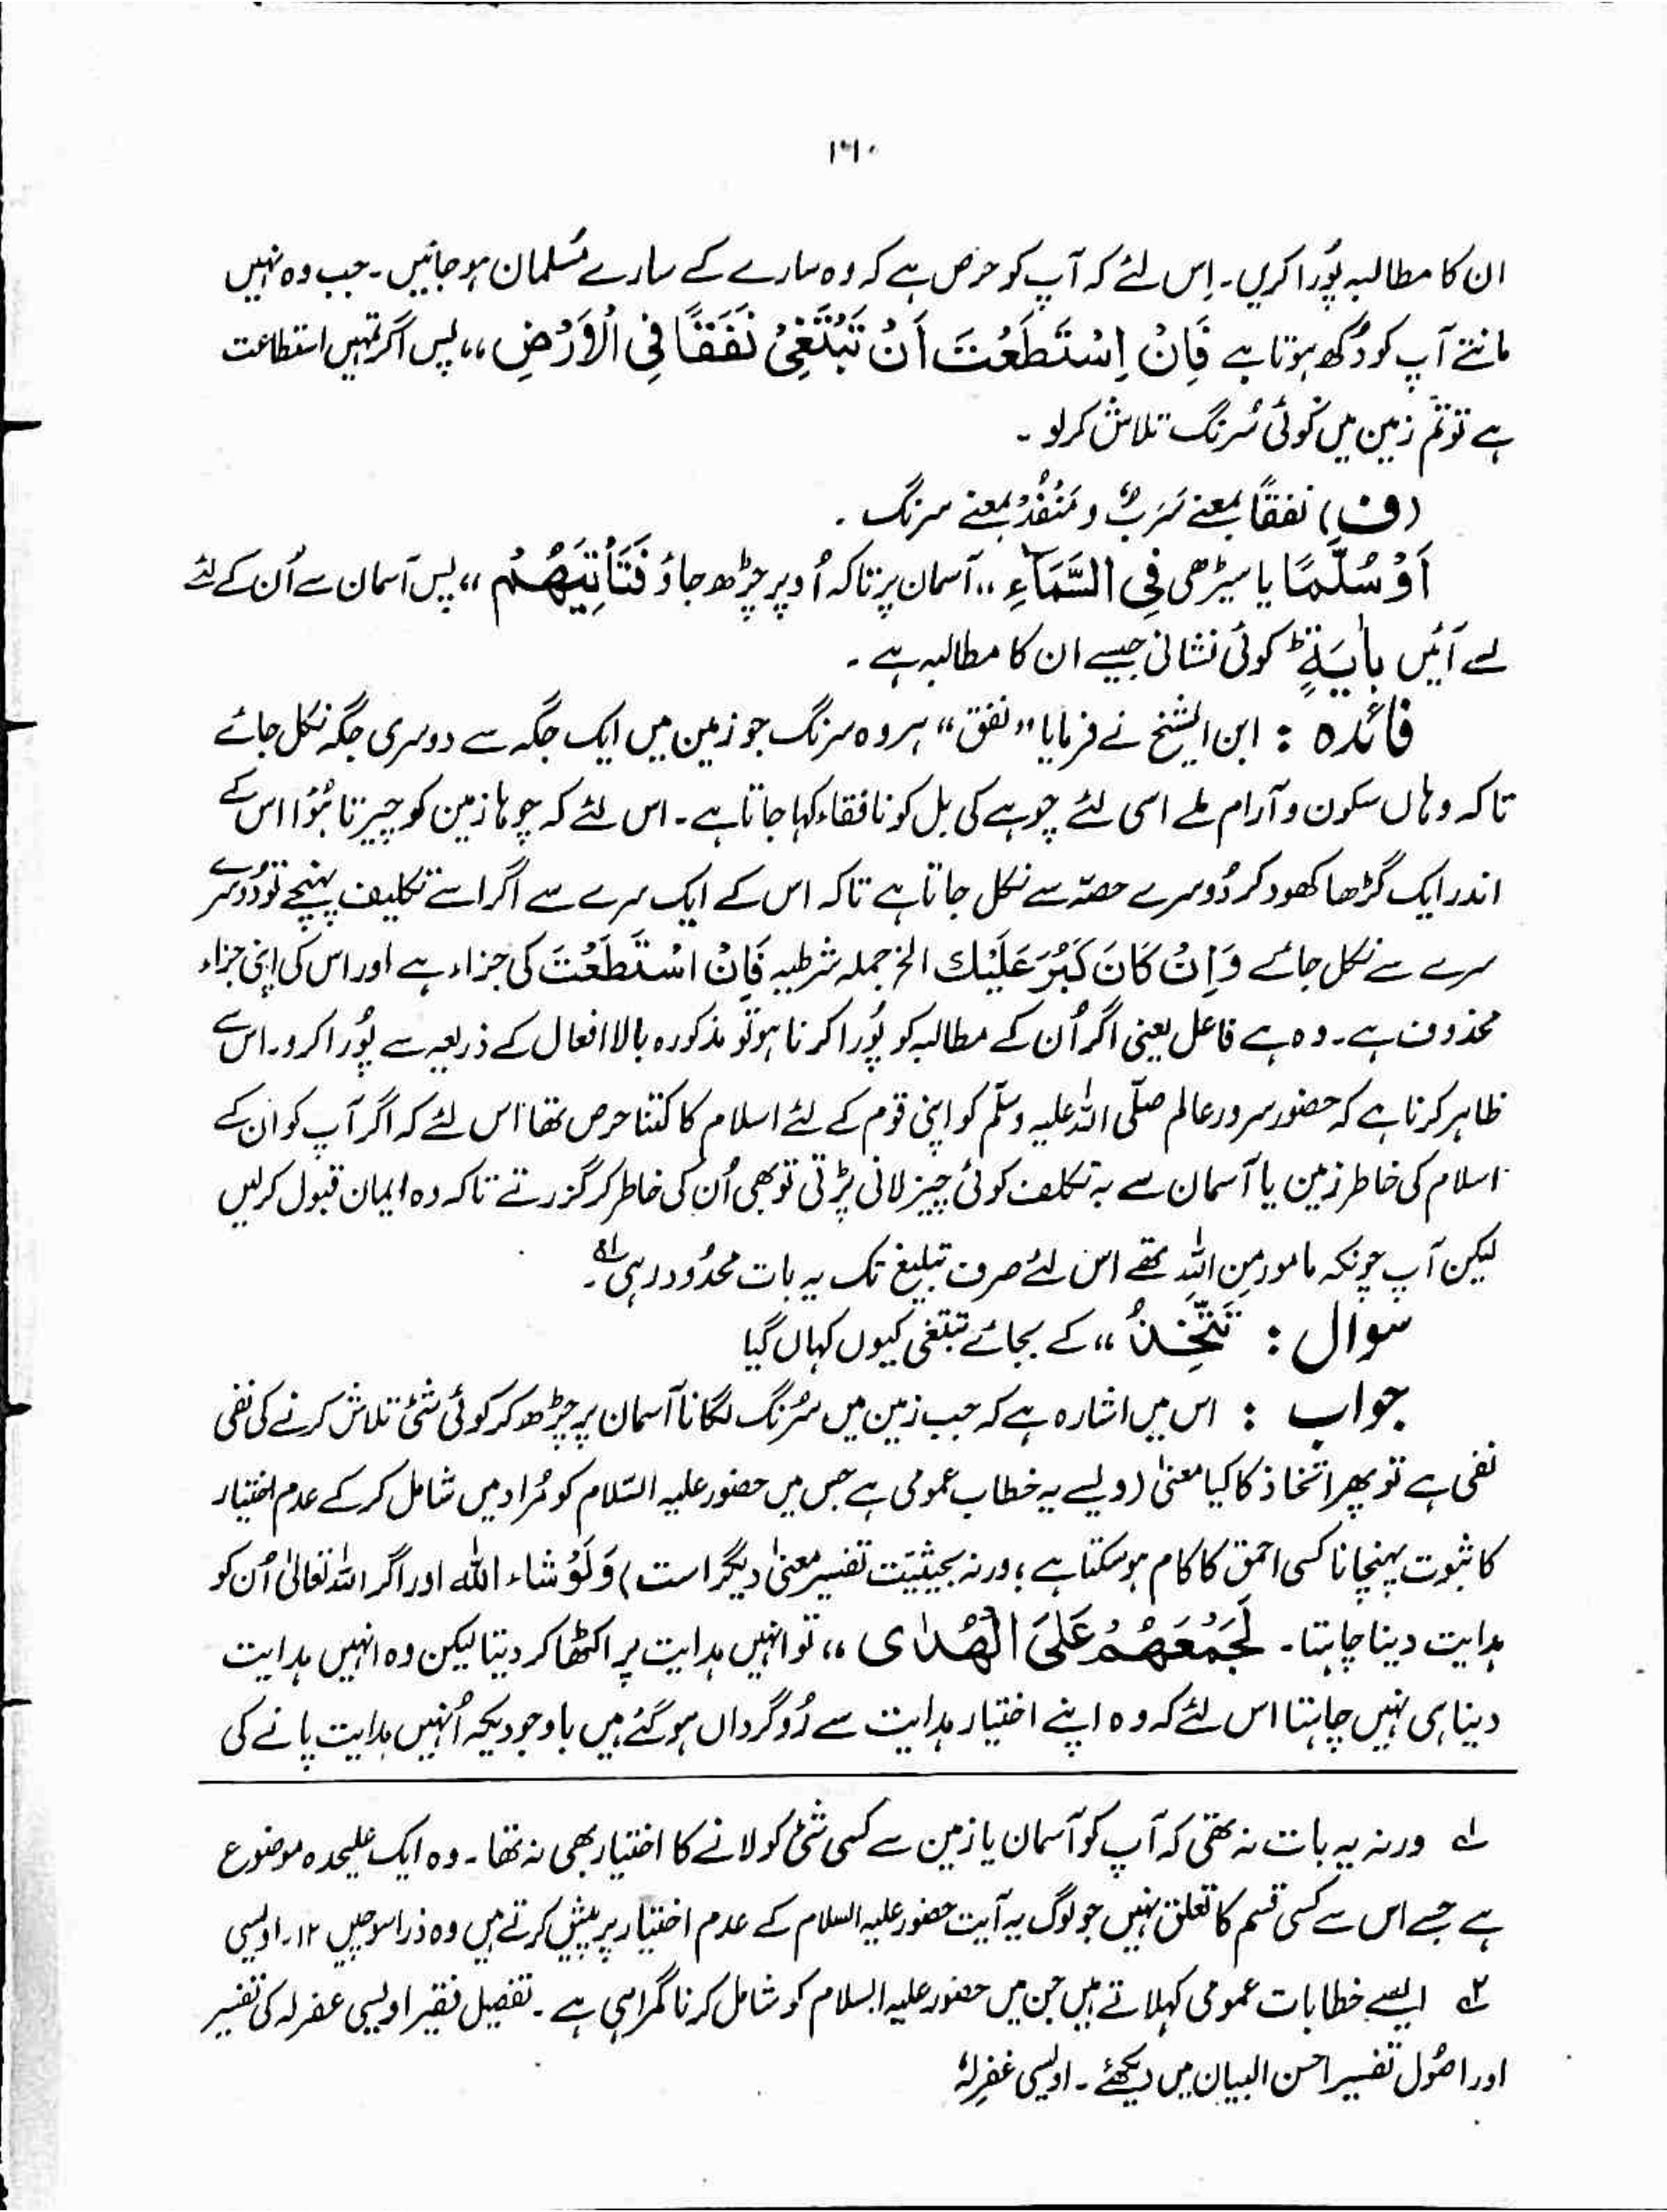 ۱۶۰
ان کا مطالبہ پُورا کریں۔ اِس لئے کہ آپ کو حرص ہے کہ وہ سارے کے سارے مُسلمان ہو جائیں۔ جب وہ نہیں
مانتے آپ کو دُکھ ہوتا ہے فَاِنْ اِسْتَطَعْتَ اَنْ تَبْتَغِیْ نَفَقًا فِی الْاَرْضِ ،، پس اگر تمہیں استطاعت
ہے تو تم زمین میں کوئی سُرنگ تلاش کر لو ۔
(ف) نفقًا بمعنے سَرَبٌ و مَنْفَذٌ بمعنے سرنگ ۔
اَوْ سُلَّمًا یا سیڑھی فِی السَّمَآءِ ،، آسمان پر تاکہ اُوپر چڑھ جاؤ فَتَاْتِیَهُمْ ،، پس آسمان سے اُن کے لئے
لے آئیں بِاٰیَةٍ ؕ کوئی نشانی جیسے ان کا مطالبہ ہے ۔
فائدہ : ابن الشیخ نے فرمایا ”نفق“ ہر وہ سرنگ جو زمین میں ایک جگہ سے دوسری جگہ نکل جائے
تاکہ وہاں سکون و آرام ملے اسی لئے چوہے کی بل کو نافقاء کہا جاتا ہے۔ اس لئے کہ چوہا زمین کو چیرتا ہُوا اس کے
اندر ایک گڑھا کھود کر دُوسرے حصّہ سے نکل جاتا ہے تاکہ اس کے ایک سرے سے اگر اسے تکلیف پہنچے تو دُوسرے
سرے سے نکل جائے وَاِنْ کَانَ کَبُرَ عَلَیْكَ الخ جملہ شرطیہ فَاِنْ اسْتَطَعْتَ کی جزاء ہے اور اس کی اپنی جزاء
محذوف ہے۔ وہ ہے فاعل یعنی اگر اُن کے مطالبہ کو پُورا کرنا ہو تو مذکورہ بالا افعال کے ذریعہ سے پُورا کرو۔ اس سے
ظاہر کرنا ہے کہ حضور سرورِ عالم صلّی اللہ علیہ وسلّم کو اپنی قوم کے لئے اسلام کا کتنا حرص تھا اس لئے کہ اگر آپ کو ان کے
اسلام کی خاطر زمین یا آسمان سے بہ تکلف کوئی چیز لانی پڑتی تو بھی اُن کی خاطر کر گزرتے تاکہ وہ ایمان قبول کر لیں
لیکن آپ چونکہ مامور مِن اللہِ تھے اس لئے صرف تبلیغ تک یہ بات محدُود رہی ؎۱۔
سوال : تَتَّخِذُ ،، کے بجائے تبتغی کیوں کہاں گیا
جواب : اس میں اشارہ ہے کہ جب زمین میں سُرنگ لگانا آسمان پر چڑھ کر کوئی شئ تلاش کرنے کی نفی
نفی ہے تو پھر اتخاذ کا کیا معنیٰ (ویسے یہ خطاب عمومی ہے جس میں حضور علیہ السّلام کو مُراد میں شامل کر کے عدم اختیار
کا ثبوت پہنچانا کسی احمق کا کام ہو سکتا ہے ؛ ورنہ بحیثیّت تفسیر معنیٰ دیگر است) وَلَوْ شاء اللہ اور اگر اللہ تعالیٰ اُن کو
ہدایت دینا چاہتا۔ لَجَمَعَهُمْ عَلَی الْهُدٰی ،، تو انہیں ہدایت پر اکٹھا کر دیتا لیکن وہ انہیں ہدایت
دینا ہی نہیں چاہتا اس لئے کہ وہ اپنے اختیار ہدایت سے رُوگرداں ہو گئے ہیں باوجودیکہ اُنہیں ہدایت پانے کی
؎۱ ورنہ یہ بات نہ تھی کہ آپ کو آسمان یا زمین سے کسی شئ کو لانے کا اختیار بھی نہ تھا۔ وہ ایک علیحدہ موضوع
ہے جسے اس سے کسی قسم کا تعلق نہیں جو لوگ یہ آیت حضور علیہ السلام کے عدم اختیار پر پیش کرتے ہیں وہ ذرا سوچیں ۱۲۔ اویسی
؎۲ ایسے خطابات عمومی کہلاتے ہیں جن میں حضور علیہ السلام کو شامل کرنا گمراہی ہے۔ تفصیل فقیر اویسی غفرلہ کی تفسیر
اور اصُول تفسیر احسن البیان میں دیکھئے۔ اویسی غفِرلہٗ